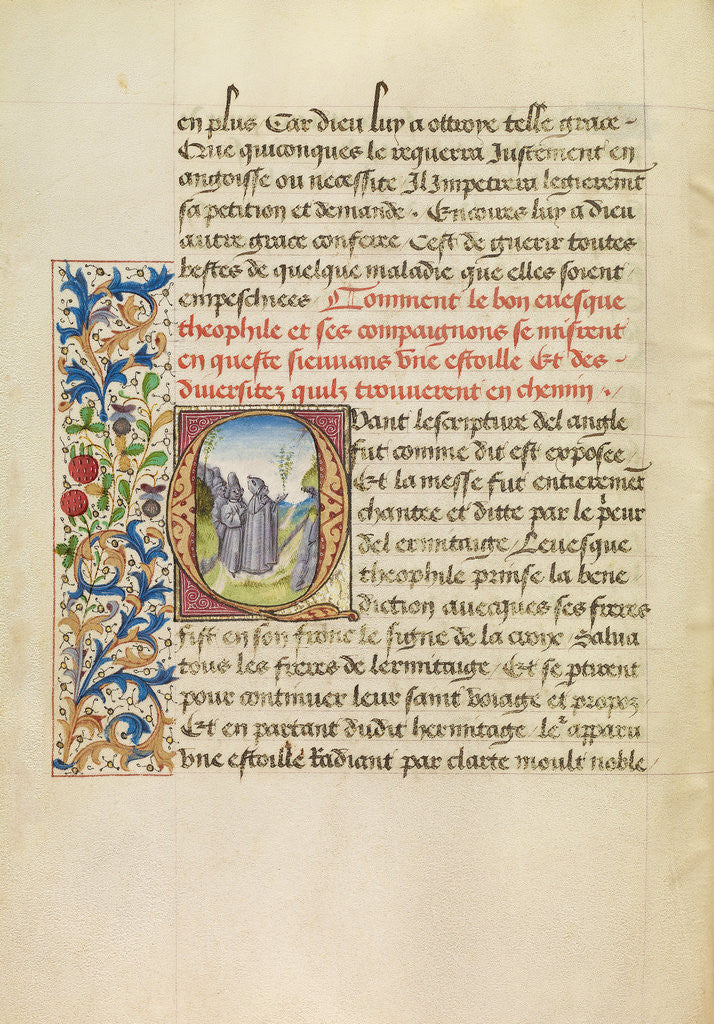 en plus Car dieu luy a ottroye telle grace -
Que quiconques le requerra Justement en
angoisse ou necessite / Il Impetrera legieremēt
sa petition et demande . Encores luy a dieu
autre grace conferee Cest de guerir toutes
bestes de quelque maladie que elles soient
empeschees / Comment le bon euesque
theophile et ses compaignons se mistrent
en queste sieuuans vne estoille Et des -
diuersitez quilz trouuerent en chemin ./
Quant lescripture del angle
fut comme dit est exposee
Et la messe fut entieremēt
chantee et ditte par le p̄eur
del ermitaige / Leuesque
theophile prinse la bene
diction auecques ses freres
fist en son fronc le signe de la croix / Salua
tous les freres de lermitaige / Et se ptirent
pour continuer leur saint voiage et propoz
Et en partant dudit hermitage / le² apparu
vne estoille Radiant par clarte moult noble /